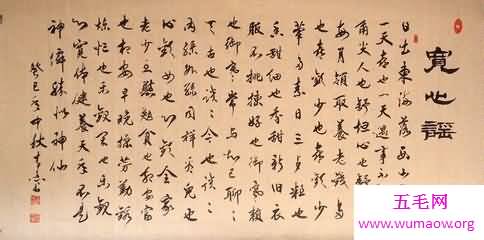 寬心謠
日出東海落西山愁也
一天喜也一天遇事不鑽牛
角尖人也舒坦心也舒坦
每月領取養老錢多
也喜歡少也喜歡少
葷多素日三餐粗也
香甜細也香甜新舊衣
服不挑揀好也御寒賴
也御寒常與知己聊聊
天古也談談今也談談
內孫外孫同樣看待兒也
心歡女也心歡全家
老少互慰勉貧也相安富
也相安早晚操勞勤鍛
煉忙也樂觀閑也樂觀
心寬體健養天年不是
神仙勝似神仙
癸巳年仲秋
五毛网
www.wumaow.org